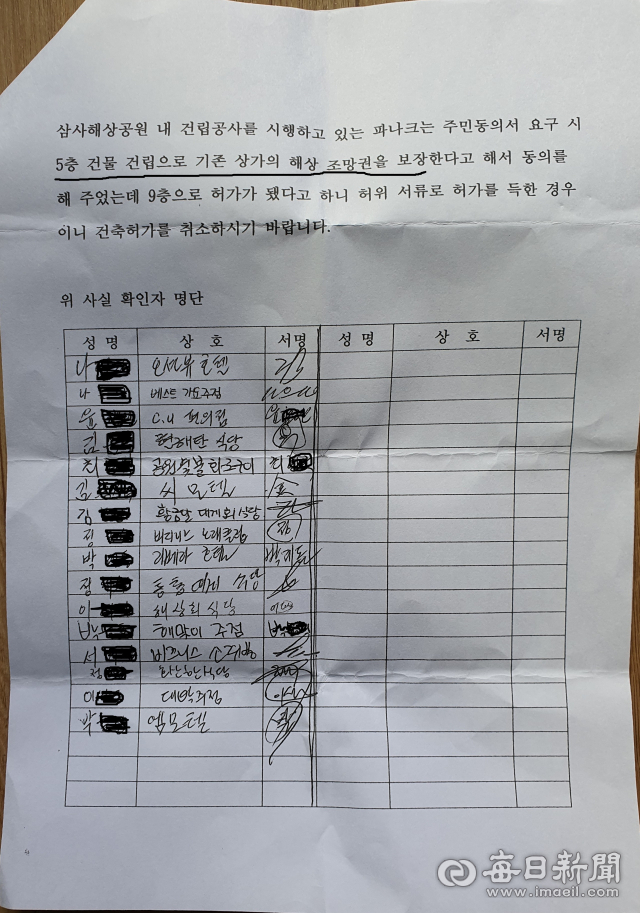 삼사해상공원 내 건립공사를 시행하고 있는 파나크는 주민동의서 요구 시
5층 건물 건립으로 기존 상가의 해상 조망권을 보장한다고 해서 동의를
해 주었는데 9층으로 허가가 됐다고 하니 허위 서류로 허가를 득한 경우
이니 건축허가를 취소하시기 바랍니다.
위 사실 확인자 명단
성 명 상 호 서명 성 명 상 호 서명
나 오션뷰 호텔
나 베스트 가요주점
윤 C.U 편의점 윤
김 현해탄 식당
진 진
김 씨 모텔
김 황금달 대게회식당
정 비지니스 노래클럽 정
박 리베라 호텔
정 식당
이 해상회 식당
박 해맞이 주점 박
서 비즈니스
정 식당
이 대박주점
박 엠모텔
每日新聞
www.imaeil.com